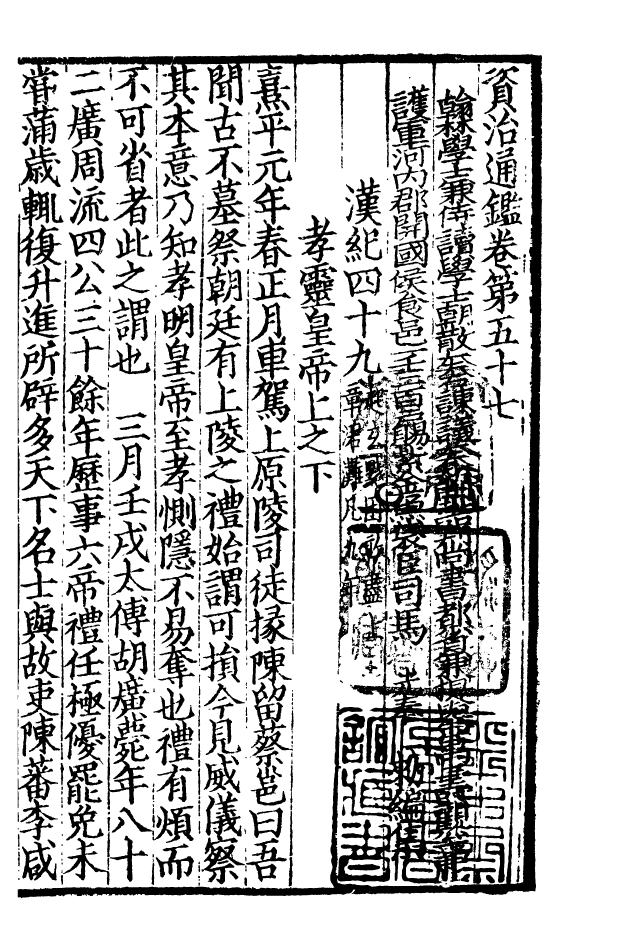 資治通鑑卷第五十七
翰林學士兼侍讀學士朝散大夫右諫議大夫
護軍河内郡開國侯食邑 司馬 光 奉 勑編集
漢紀四十九
孝靈皇帝上之下
熹平元年春正月車駕上原陵司徒掾陳留蔡邕曰吾
聞古不墓祭朝廷有上陵之禮始謂可損今見威儀察
其本意乃知孝明皇帝至孝惻隱不易奪也禮有煩而
不可省者此之謂也 三月壬戌太傅胡廣薨年八十
二廣周流四公三十餘年歷事六帝禮任極優罷免未
嘗蒲歳輒復升進所辟多天下名士與故吏陳蕃李咸